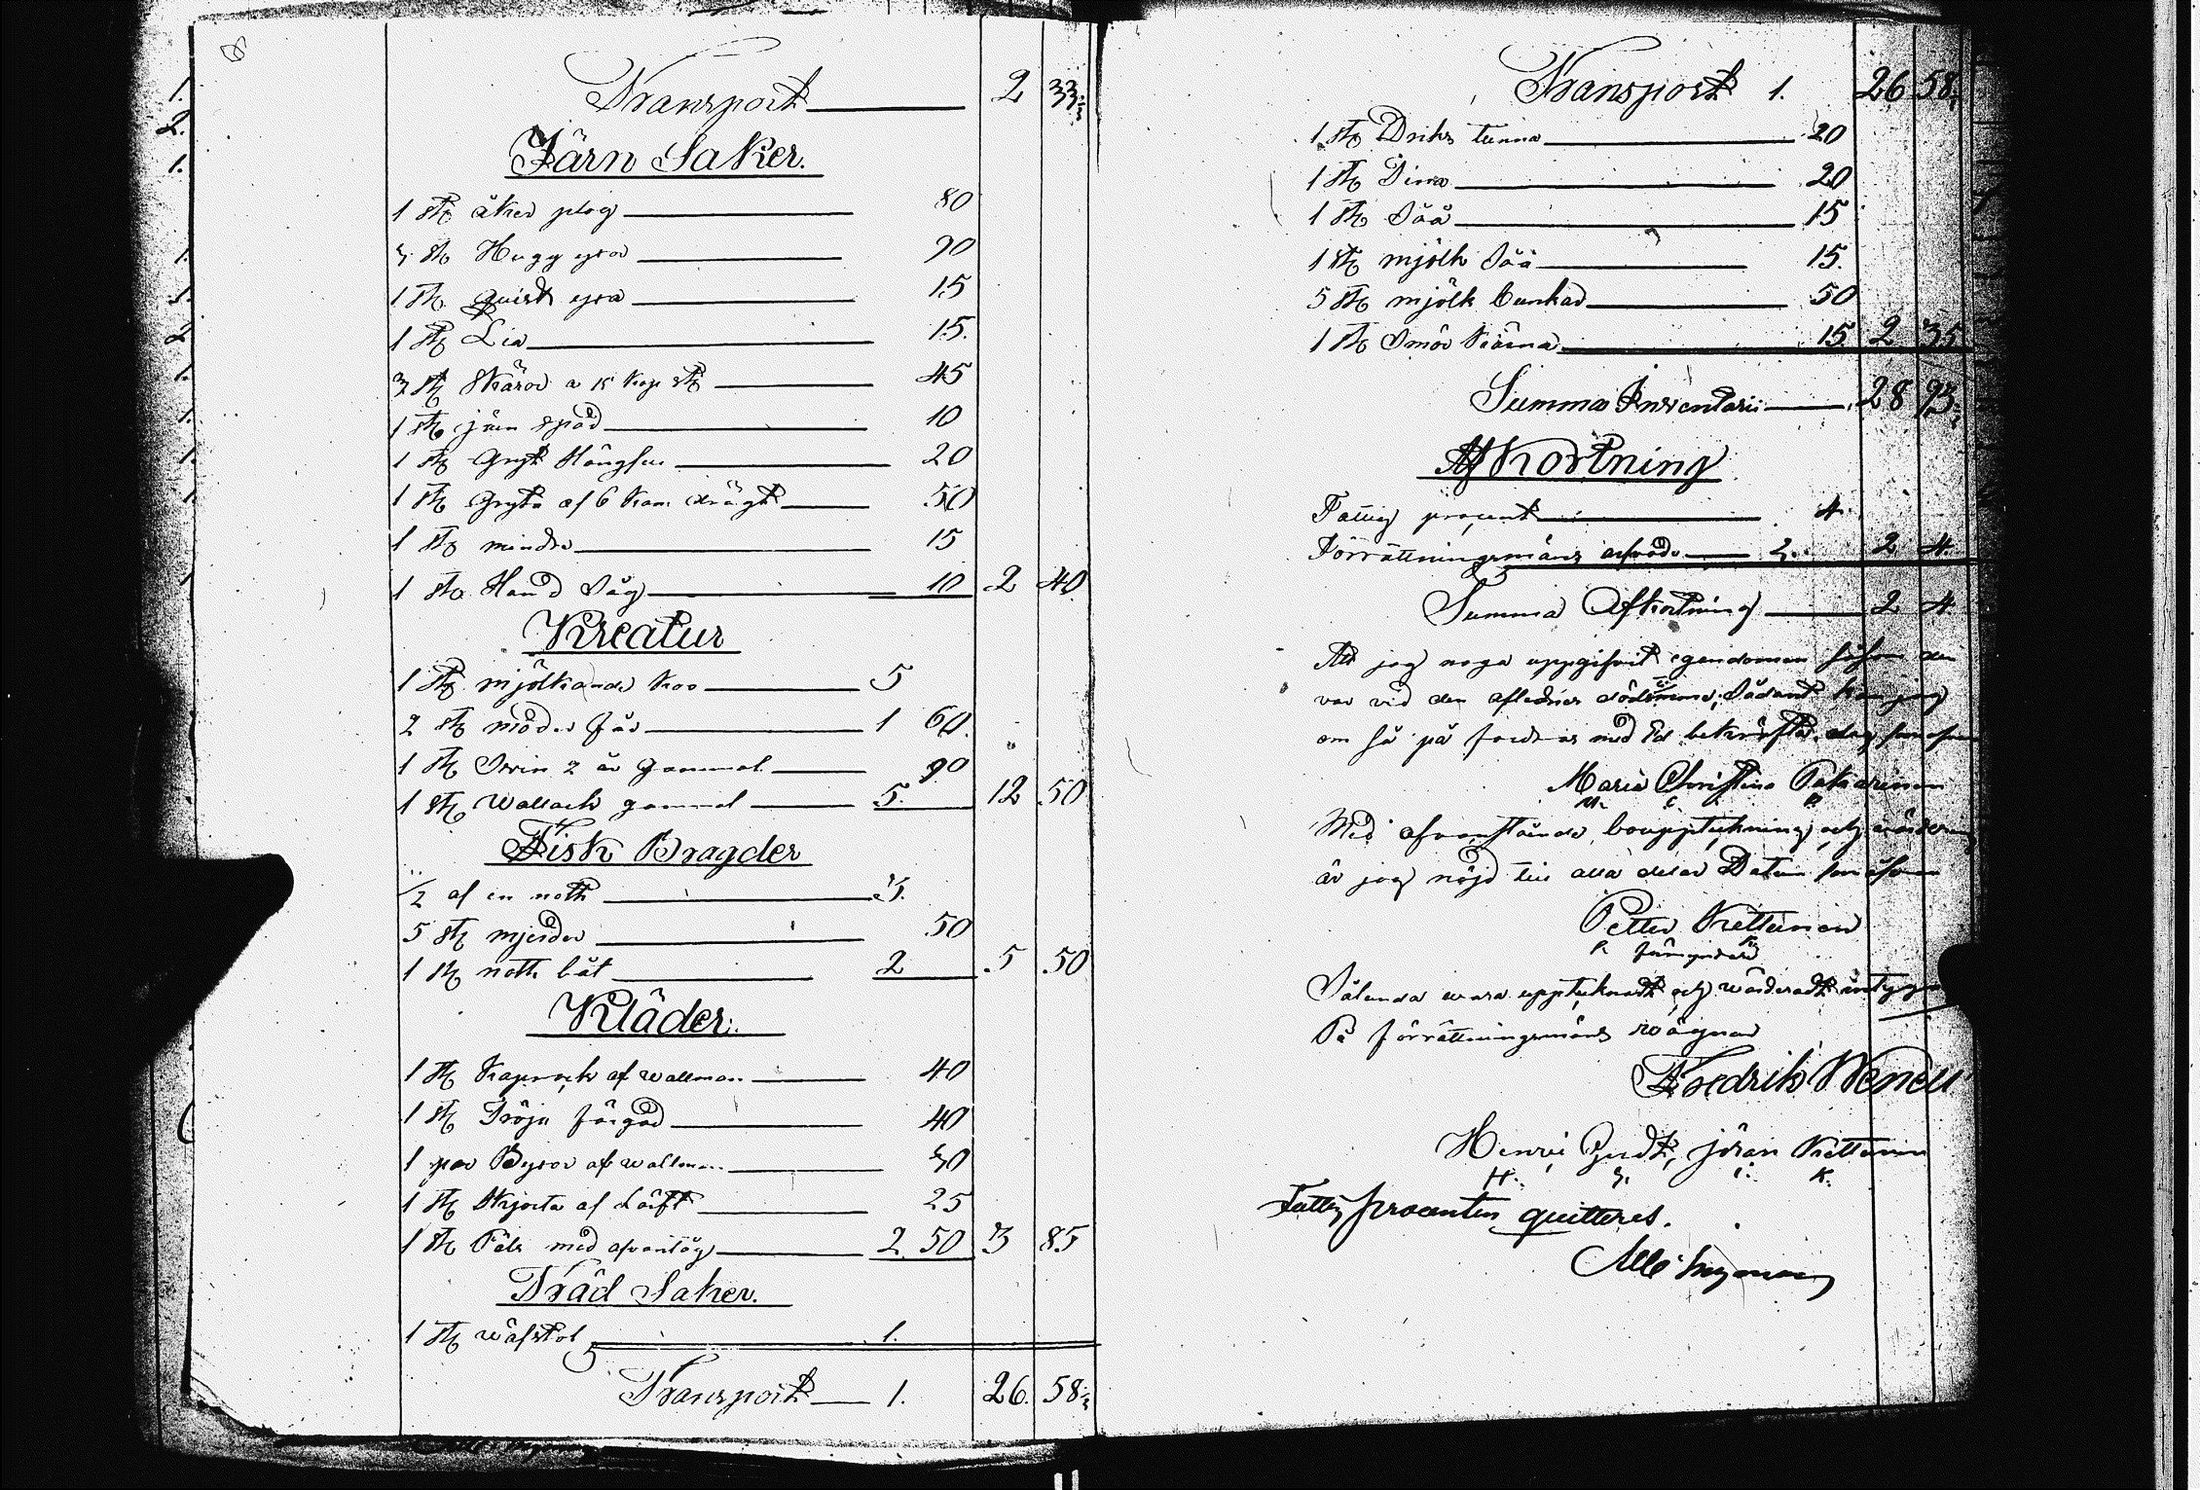 Transport 2 33
Järn Saker.
1 st åker plog 80
3 st Hugg yxor 90
1 st quist yxa 15
1 st Lia 15.
3 st Skäror a 15 kop st 45
1 st järn spad 10
1 st Gryt Hängsen 20
1 st Gryta af 6 kan. drägt 50
1 st mindre 15
1 st Hand Såg 10 2 40
Kreatur
1 st mjölkande Koo 5
2 st möder får 1 60.
1 st Svin 2 år gammal 90
1 st Wallack gammal 5. 12 50
Fisk Bragder
1/2 af en noth 3.
5 st mjerder 50
1 st noth båt 2 5 50
Kläder.
1 st Kaprock af wallman 40
1 st Tröja färgad 40
1 par Byxor af wallman 30
1 st Skjorta af Läift 25
1 st Päls med 2 50 3 85
Träd Saker.
1 st wäfstol 1.
Transport 1. 26. 58
Transport 1. 26 58
1 st Driks tunna 20
1 st Tina 20
1 st Såå 15
1 st mjölk Såå 15.
5 st mjölk bunkar 50
1 st Smör Kärna 15 2 35
Summa Inventarii 28 93
Afkortning
Fattig procent 4.
Förrättningsmäns arfvode 2. 2 4.
Summa Afkortning 2 4.
Att jag noga uppgifvit egendomen såsom den
var vid den aflednes dödstimme, Sådant kan jag
om så på fordras med Ed bekräfta. dag som ofvan
Maria Christina Pakarinen
M. C. P.
Med ofvanstående bouppteckning och värdering
är jag nöjd till alla delar Datum som ofvan
Petter Kettunen
P. K.
Sålunda vara upptecknadt och wärderadt intygar
På förrättningsmäns wägnar
Fredrik Wenell
Henric Jöran Kettunen
H. K.
Fattig procenten quitteres.